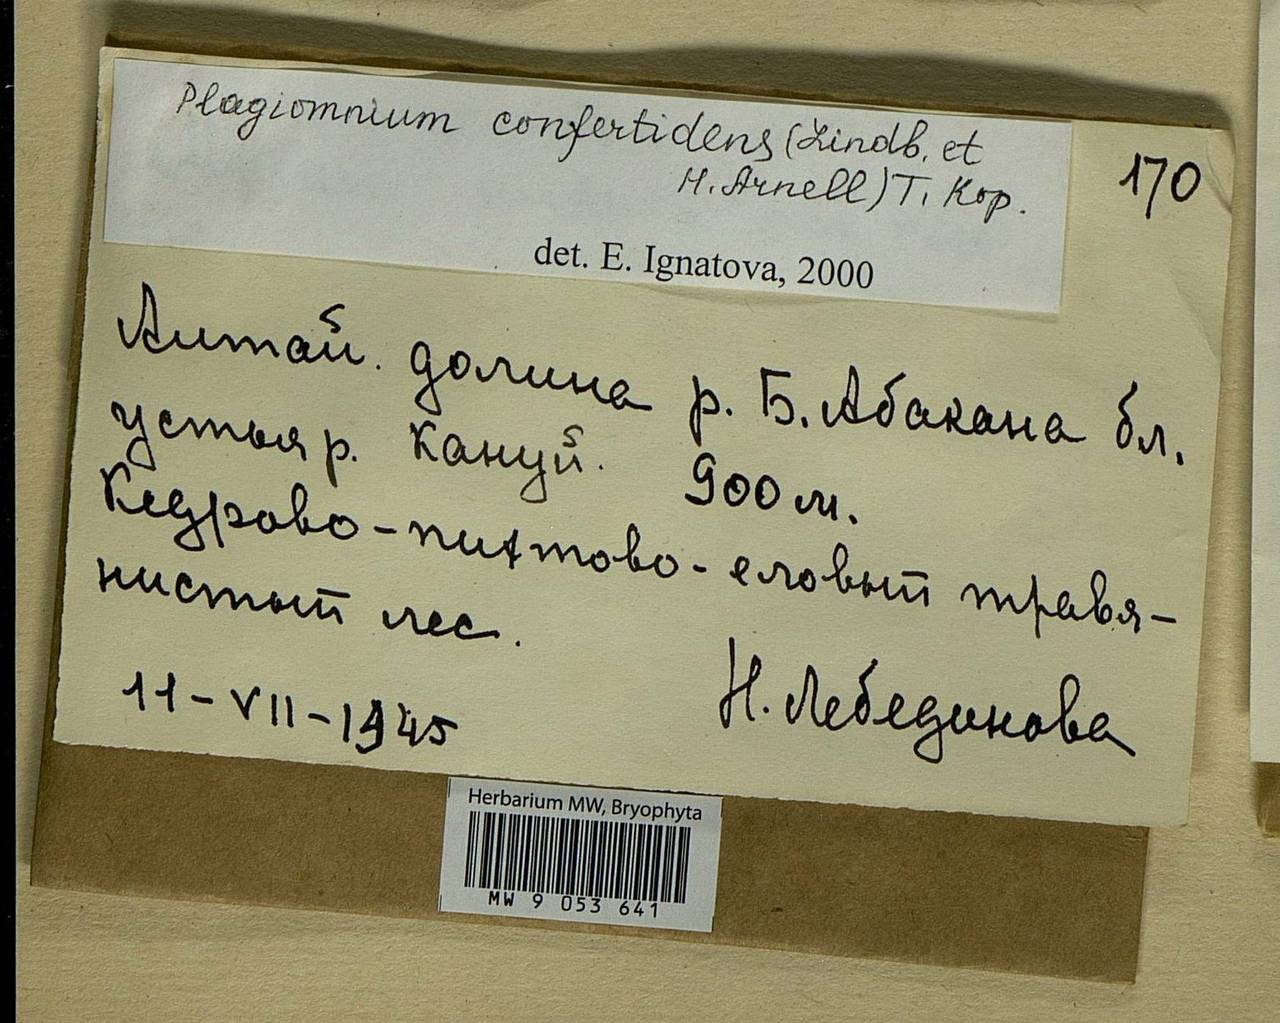 Plagiomnium confertidens (Lindb. et
H. Arnell) T. Kop.
170
det. E. Ignatova, 2000
Алтай. долина р. Б. Абакана бл.
устья р. Кануй. 900 м.
Кедрово-пихтово-еловый травя-
нистый лес.
11-VII-1945
Н. Лебединова
Herbarium MW, Bryophyta
MW 9 053 641